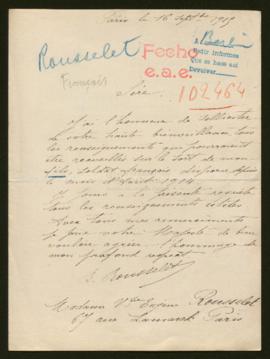 Paris le 16 Septbre 1917
Rousselet
Français
Fecho
e.a.e.
A Berlin
Pedir informes
Que se hace así
Devolver
102464
Sire,
J'ai l'honneur de solliciter
de votre haute bienveillance tous
les renseignements qui pourraient
être recueillis sur le sort de mon
fils, soldat français disparu depuis
le mois d'Août 1914.
Je joins à la présente requête
tous les renseignements utiles
Avec tous mes remerciements
je prie votre Majesté de bien
vouloir agréer l'hommage de
mon profond respect
Rousselet
Madame Vve Eugène Rousselet
67 rue Lamarck Paris